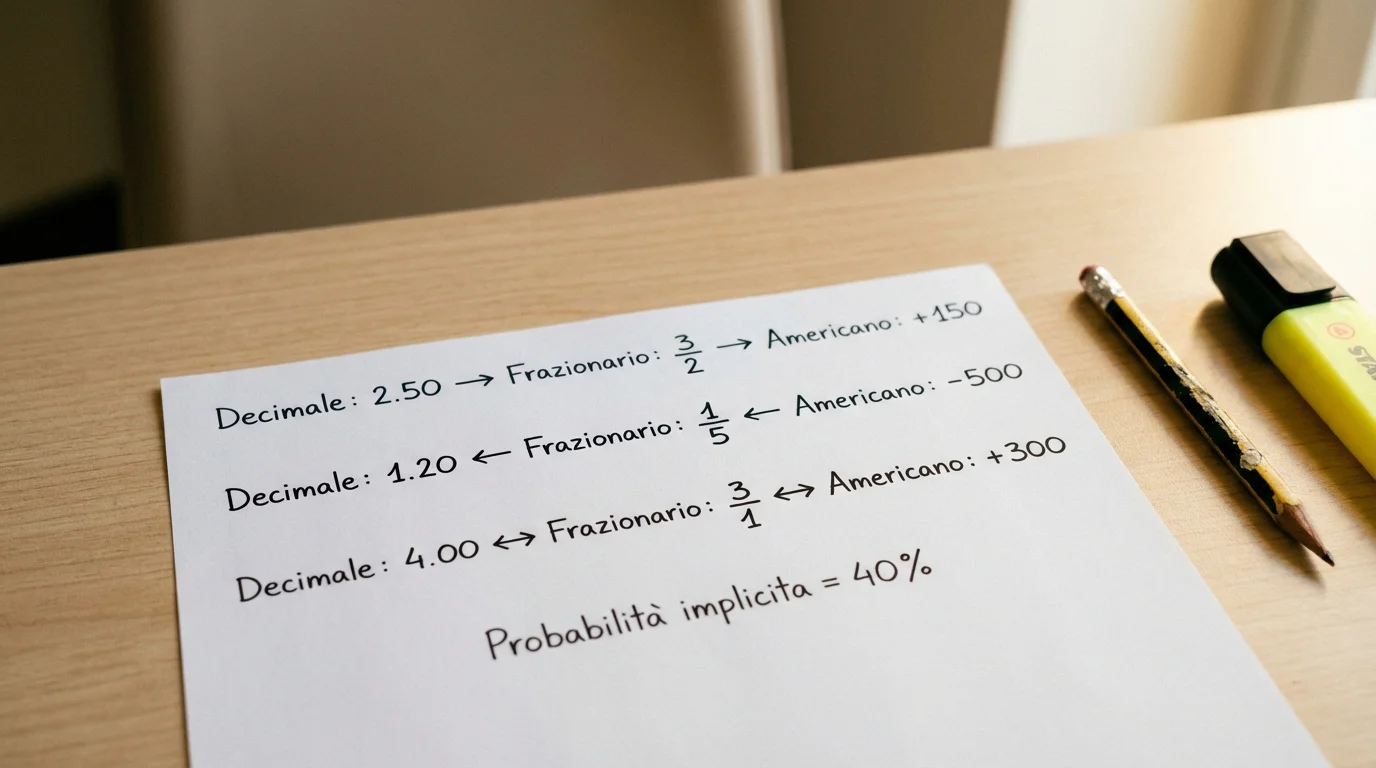 Decimale: 2.50 → Frazionario: 3/2 → Americano: +150
Decimale: 1.20 ← Frazionario: 1/5 ← Americano: -500
Decimale: 4.00 ↔ Frazionario: 3/1 ↔ Americano: +300
Probabilità implicita = 40%